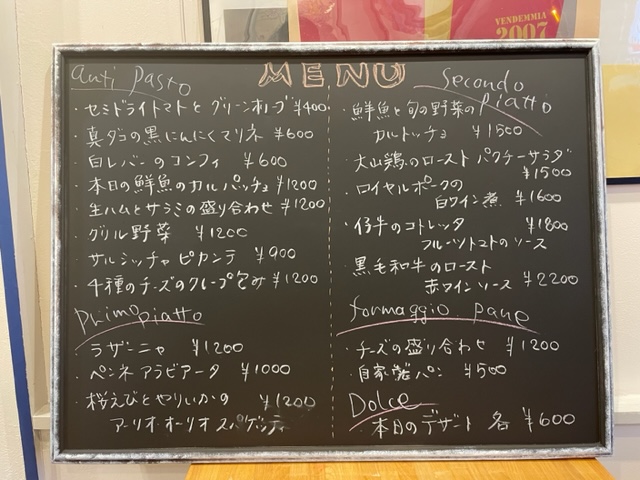 VENDEMMIA
2007
MENU
anti pasto
・セミドライトマトとグリーンオリーブ ¥400
・真ダコの黒にんにくマリネ ¥600
・白レバーのコンフィ ¥600
・本日の鮮魚のカルパッチョ ¥1200
・生ハムとサラミの盛り合わせ ¥1200
・グリル野菜 ¥1200
・サルシッチャピカンテ ¥900
・4種のチーズのクレープ包み ¥1200
primo piatto
・ラザーニャ ¥1200
・ペンネアラビアータ ¥1000
・桜えびとやりいかの ¥1200
アーリオ・オーリオスパゲッティ
Secondo
piatto
・鮮魚と旬の野菜の
カルトッチョ ¥1500
・大山鶏のロースト パクチーサラダ
¥1500
・ロイヤルポークの
白ワイン煮 ¥1600
・仔牛のコトレッタ ¥1800
フルーツトマトのソース
・黒毛和牛のロースト
赤ワインソース ¥2200
formaggio. pane
・チーズの盛り合わせ ¥1200
・自家製パン ¥500
Dolce
本日のデザート 各 ¥600